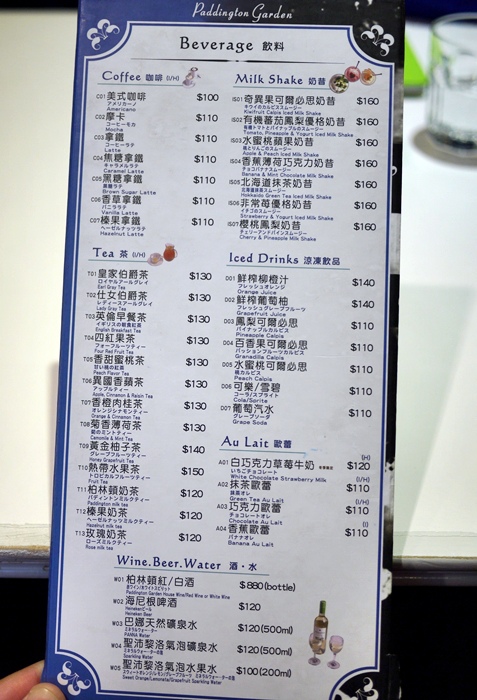 Paddington Garden
Beverage 飲料
Coffee 咖啡 (I/H)
C01 美式咖啡 $100
アメリカーノ
Americano
C02 摩卡 $110
コーヒーモカ
Mocha
C03 拿鐵 $110
コーヒーラテ
Latte
C04 焦糖拿鐵 $110
キャラメルラテ
Caramel Latte
C05 黑糖拿鐵 $110
黒糖ラテ
Brown Sugar Latte
C06 香草拿鐵 $110
バニララテ
Vanilla Latte
C07 榛果拿鐵 $110
ヘーゼルナッツラテ
Hazelnut Latte
Tea 茶 (I/H)
T01 皇家伯爵茶 $130
ロイヤルアールグレイ
Earl Gray Tea
T02 仕女伯爵茶 $130
レディースアールグレイ
Lady Grey Tea
T03 英倫早餐茶 $130
イギリスの朝食紅茶
English Breakfast Tea
T04 四紅果茶 $130
フォーフルーツティー
Four Red Fruit Tea
T05 香甜蜜桃茶 $130
甘い桃の紅茶
Peach Flavor Tea
T06 異國香蘋茶 $130
アップルティー
Apple, Cinnamon & Raisin Tea
T07 香橙肉桂茶 $130
オレンジシナモンティー
Orange & Cinnamon Tea
T08 菊香薄荷茶 $130
菊のミントティー
Camomile & Mint Tea
T09 黃金柚子茶 $140
グレープフルーツティー
Honey Grapefruit Tea
T10 熱帶水果茶 $150
トロピカルフルーツティー
Fruit Tea
T11 柏林頓奶茶 $120
パディントンミルクティー
Paddington milk tea
T12 榛果奶茶 $120
ヘーゼルナッツミルクティー
Hazelnut milk tea
T13 玫瑰奶茶 $120
ローズミルクティー
Rose milk tea
Milk Shake 奶昔
IS01 奇異果可爾必思奶昔 $160
キウイのカルピススムージー
Kiwifruit Calpis Iced Milk Shake
IS02 有機蕃茄鳳梨優格奶昔 $160
有機トマトとパイナップルのスムージー
Tomato, Pineapple & Yogurt Iced Milk Shake
IS03 水蜜桃蘋果奶昔 $160
桃とりんごのスムージー
Apple & Peach Iced Milk Shake
IS04 香蕉薄荷巧克力奶昔 $160
チョコバナナスムージー
Banana & Mint Chocolate Milk Shake
IS05 北海道抹茶奶昔 $160
北海道抹茶スムージー
Hokkaido Green Tea Iced Milk Shake
IS06 非常莓優格奶昔 $160
イチゴのスムージー
Strawberry & Yogurt Iced Milk Shake
IS07 櫻桃鳳梨奶昔 $160
チェリーアンドパインスムージー
Cherry & Pineapple Milk Shake
Iced Drinks 涼凍飲品
D01 鮮榨柳橙汁 $140
フレッシュオレンジ
Orange Juice
D02 鮮榨葡萄柚 $140
フレッシュグレープフルーツ
Grapefruit Juice
D03 鳳梨可爾必思 $110
パイナップルカルピス
Pineapple Calpis
D04 百香果可爾必思 $110
パッションフルーツカルピス
Granadilla Calpis
D05 水蜜桃可爾必思 $110
桃カルピス
Peach Calpis
D06 可樂/雪碧 $110
コーラ/スプライト
Cola/Sprite
D07 葡萄汽水 $110
グレープソーダ
Grape Soda
Au Lait 歐蕾
(H)
A01 白巧克力草莓牛奶 $120
いちごチョコレート
White Chocolate Strawberry Milk (I/H)
A02 抹茶歐蕾 $110
抹茶オレ
Green Tea Au Lait (I/H)
A03 巧克力歐蕾 $110
チョコレートオレ
Chocolate Au Lait (I)
A04 香蕉歐蕾 $110
バナナオレ
Banana Au Lait
Wine.Beer.Water 酒・水
W01 柏林頓紅/白酒 $880(bottle)
Paddington Garden House Wine/Red Wine or White Wine
W02 海尼根啤酒 $120
Heinekenビール
Heineken Beer
W03 巴娜天然礦泉水 $120(500ml)
ミネラルウォーター
PANNA Water
W04 聖沛黎洛氣泡礦泉水 $120(500ml)
Sparkling Water
W05 聖沛黎洛氣泡水果水 $100(200ml)
Sweet Orange/Lemonata/Grapefruit Sparkling Water